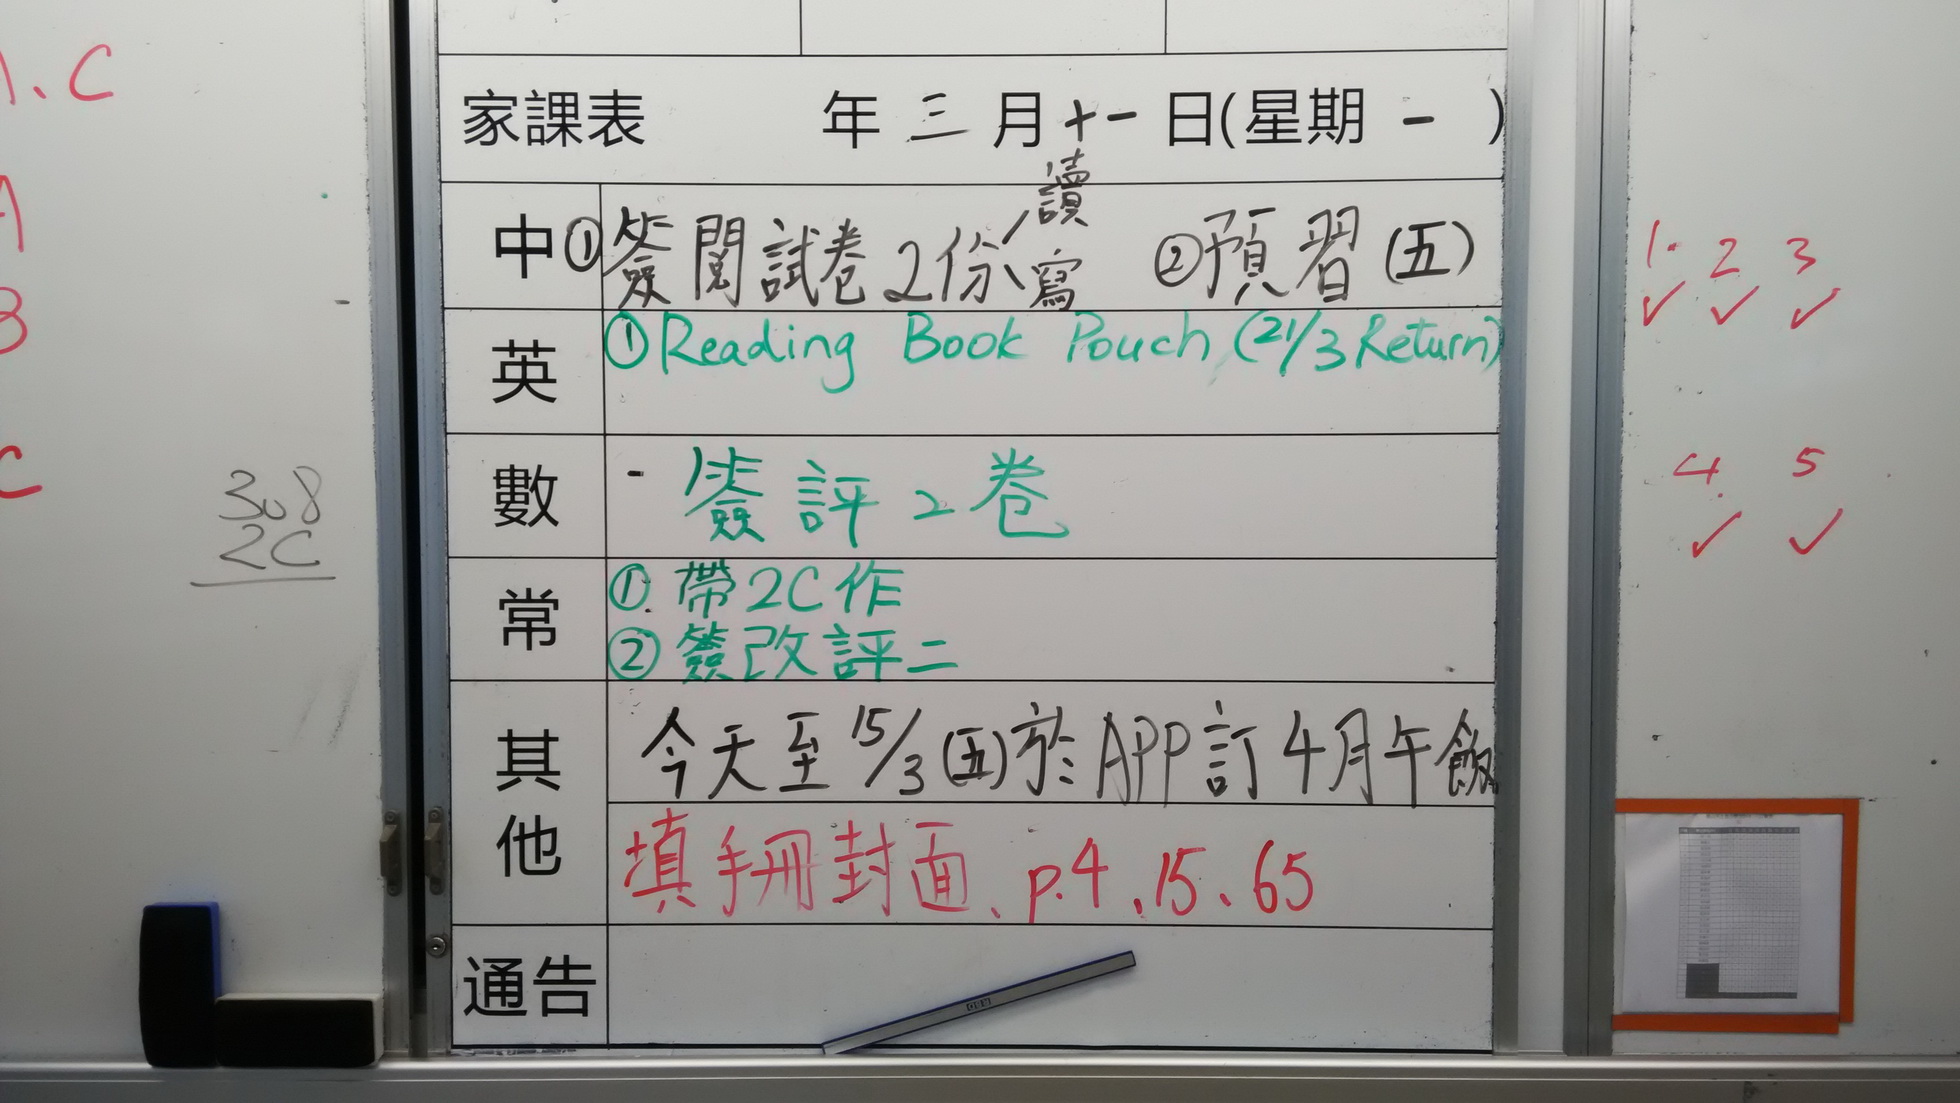 家課表 年 三 月 十一 日(星期 一 )
中 ①簽閱試卷2份 讀 寫 ②預習(五)
英 ①Reading Book Pouch (21/3 Return)
數 - 簽評2卷
常 ① 帶2C作
② 簽改評二
其他 今天至15/3(五)於APP訂4月午飯
填手冊封面、p.4、15、65
通告
、C
A
B
C
308
2C
1. 2 3
✓ ✓ ✓
4. 5
✓ ✓